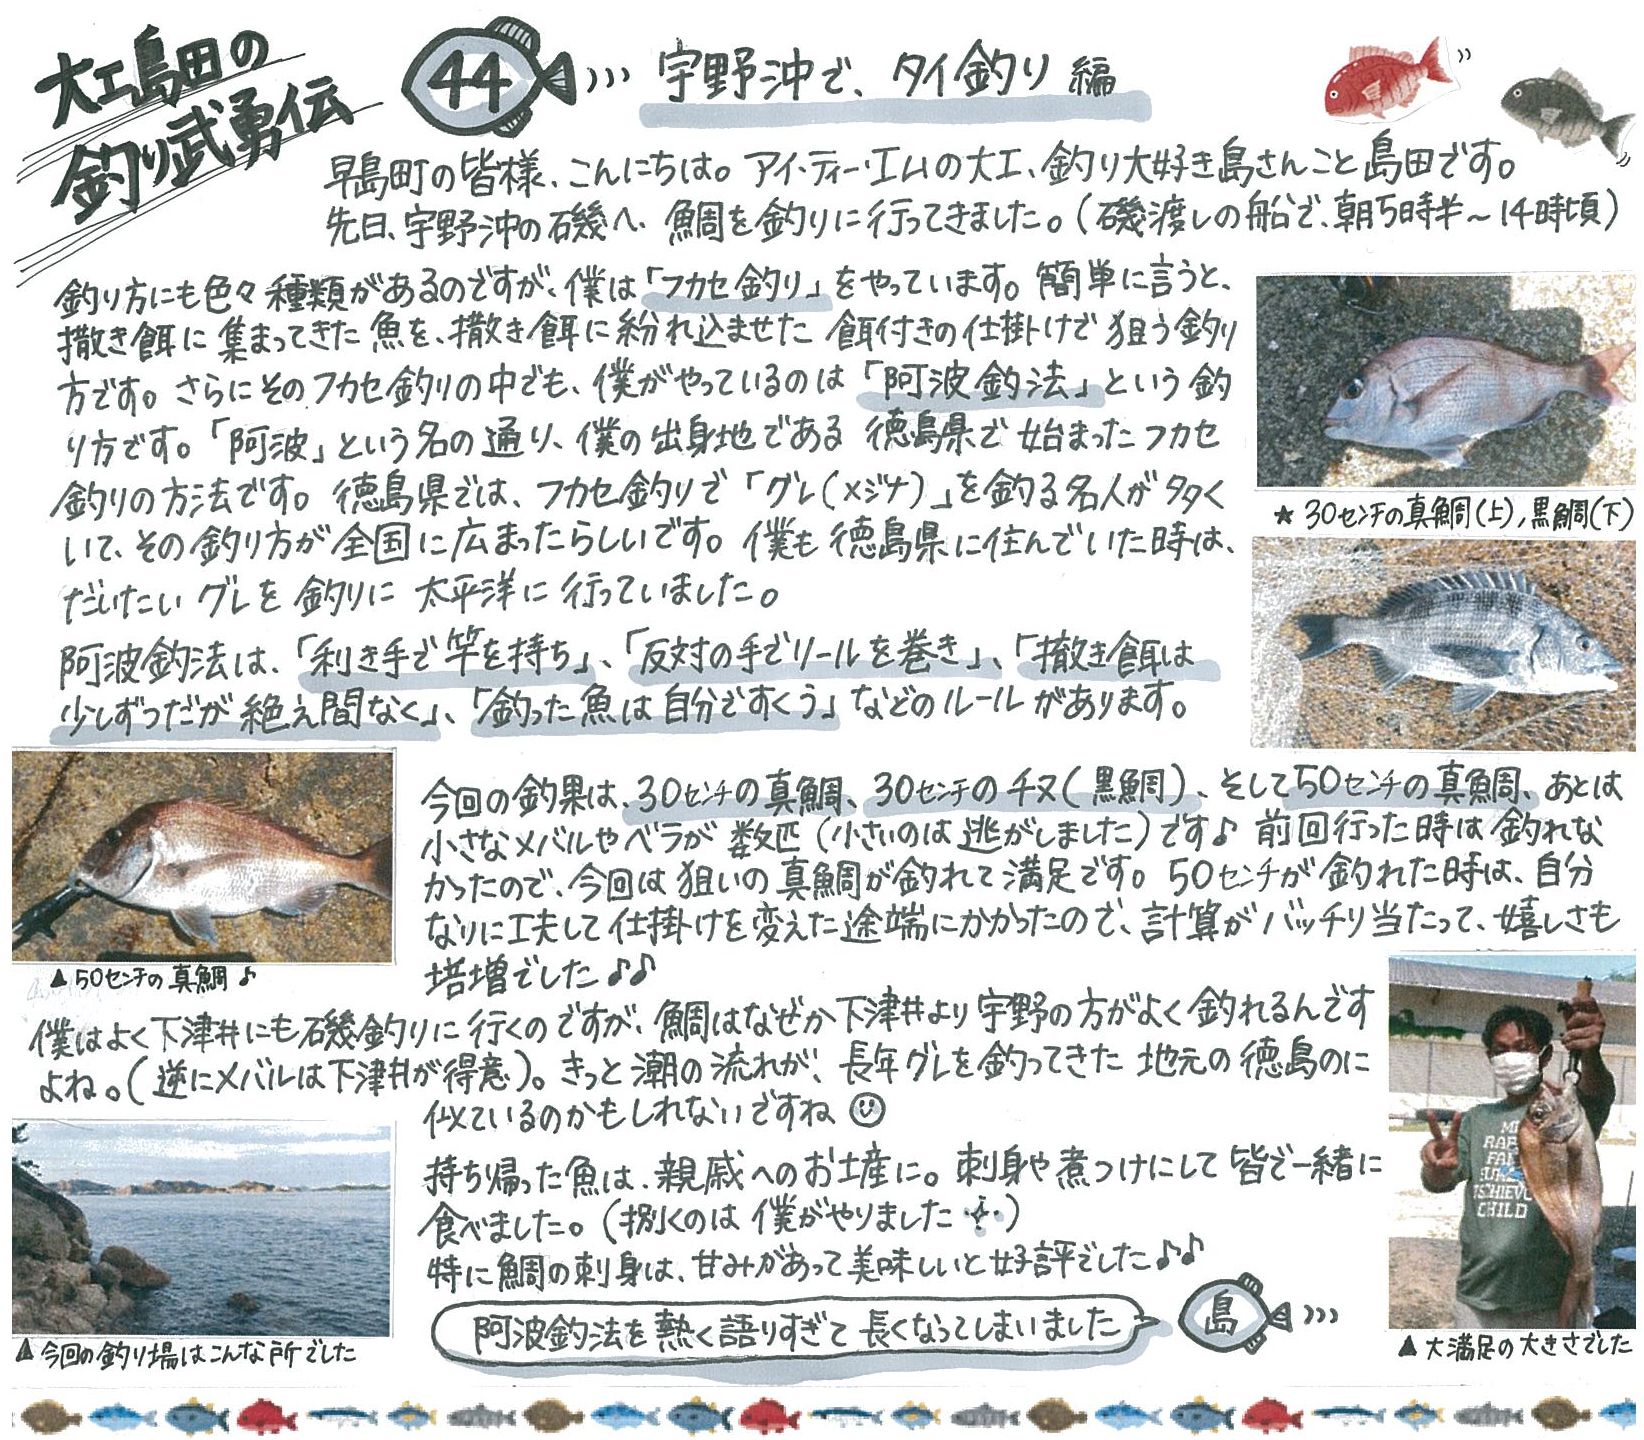 大工島田の
釣り武勇伝
44
宇野沖で、タイ釣り編
早島町の皆様、こんにちは。アイ・ティー・エムの大工、釣り大好き島さんこと島田です。
先日、宇野沖の石磯へ、魚鯛を釣りに行ってきました。(磯渡しの船で、朝5時半～14時頃)
釣り方にも色々種類があるのですが、僕は「フカセ釣り」をやっています。簡単に言うと、
撒き餌に集まってきた魚を、撒き餌に紛れ込ませた餌付きの仕掛けで狙う釣り
方です。さらにそのフカセ釣りの中でも、僕がやっているのは「阿波釣法」という釣
り方です。「阿波」という名の通り、僕の出身地である徳島県で始まったフカセ
釣りの方法です。徳島県では、フカセ釣りで「グレ(メジナ)」を釣る名人が多く
いて、その釣り方が全国に広まったらしいです。僕も徳島県に住んでいた時は、
だいたいグレを釣りに太平洋に行っていました。
阿波釣法は、「利き手で竿を持ち」、「反対の手でリールを巻き」、「撒き餌は
少しずつだが絶え間なく」、「釣った魚は自分ですくう」などのルールがあります。
★30センチの真鯛(上),黒鯛(下)
今回の釣果は、30センチの真鯛、30センチのチヌ(黒鯛)、そして50センチの真鯛、あとは
小さなメバルやベラが数匹(小さいのは逃がしました)です♪前回行った時は釣れな
かったので、今回は狙いの真鯛が釣れて満足です。50センチが釣れた時は、自分
なりに工夫して仕掛けを変えた途端にかかったので、計算がバッチリ当たって、嬉しさも
倍増でした♪♪
▲50センチの真鯛♪
僕はよく下津井にも石磯釣りに行くのですが、鯛はなぜか下津井より宇野の方がよく釣れるんです
よね。(逆にメバルは下津井が得意)。きっと潮の流れが、長年グレを釣ってきた地元の徳島のに
似ているのかもしれないですね
持ち帰った魚は、親戚へのお土産に。刺身や煮つけにして皆で一緒に
食べました。(捌くのは僕がやりました)
特に鯛の刺身は、甘みがあって美味しいと好評でした♪♪
阿波釣法を熱く語りすぎて長くなってしまいました
島
▲今回の釣り場はこんな所でした
CHILD
▲大満足の大きさでした